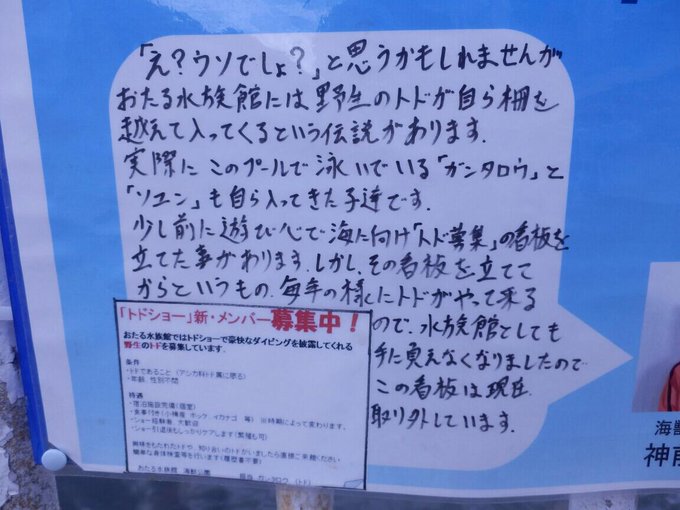 「え？ウソでしょ？」と思うかもしれませんが
おたる水族館には野生のトドが自ら柵を
越えて入ってくるという伝説があります.
実際にこのプールで泳いでいる「ガンタロウ」と
「ソユン」も自ら入ってきた子達です.
少し前に遊び心で海に向け「トド募集」の看板を
立てた事があります.しかし、その看板を立てて
からというもの、毎年の様にトドがやって来る
ので、水族館としても
手に負えなくなりましたので
この看板は現在
取り外しています.
「トドショー」新・メンバー募集中！
おたる水族館ではトドショーで豪快なダイビングを披露してくれる
野生のトドを募集しています.
条件
・トドであること（アシカ科トド属に限る）
・年齢、性別不問
待遇
・宿泊施設完備（個室）
・食事付き（小樽産 ホッケ、イカナゴ 等）※時期によって変わります.
・ショー経験者 大歓迎
・ショー引退後もしっかりケアします（繁殖も可）
興味をもたれたトドや、知り合いのトドがいましたら直接ご来館ください
簡単な身体検査等を行います（履歴書不要）
おたる水族館 海獣公園
担当 ガンタロウ（トド）
海獣
神前